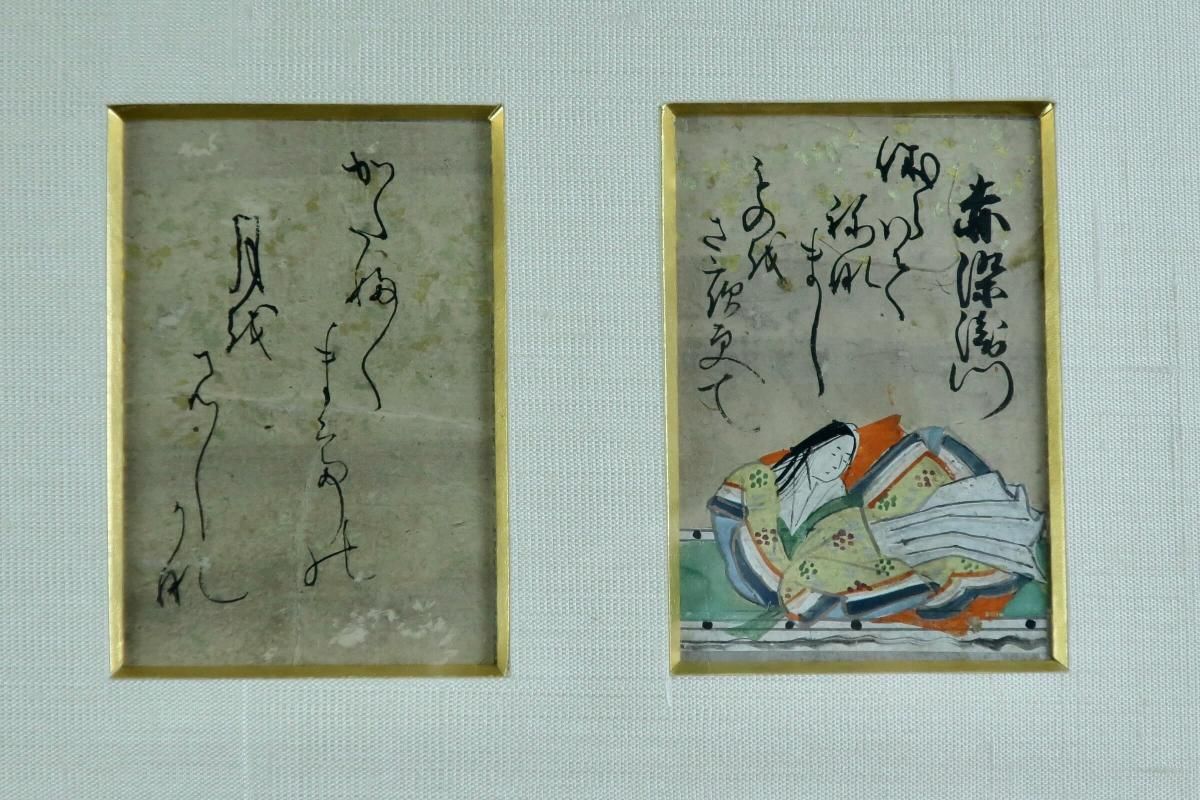 赤染衛門
やすらはて
ねな
まし
ものを
さ夜更て
かたふく
まての
月を
みし
かな